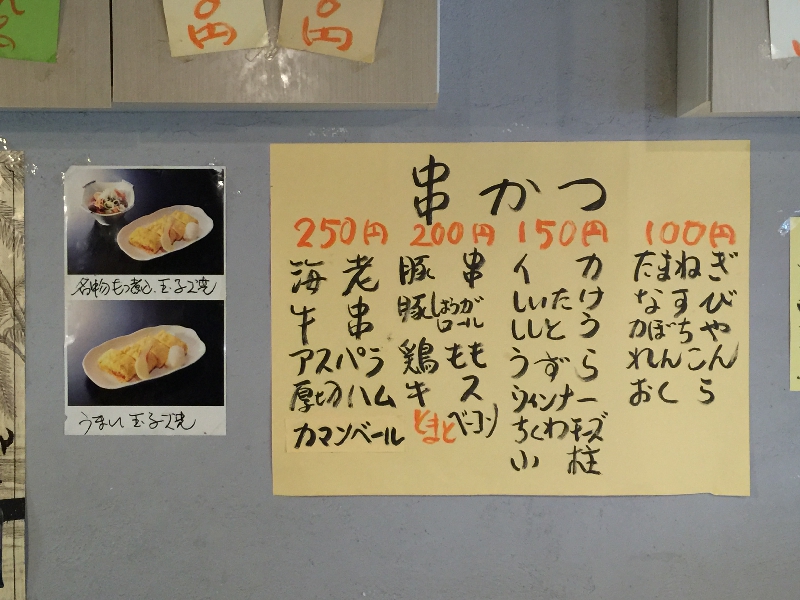 0円
0円
名物もつ煮込、玉子焼
うまい玉子焼
串かつ
250円
海老
牛串
アスパラ
厚切ハム
カマンベール
200円
豚串
豚しょうが
ロール
鶏もも
キス
とまとベーコン
150円
イカ
しいたけ
ししとう
うずら
ウィンナー
ちくわチーズ
小柱
100円
たまねぎ
なすび
かぼちゃ
れんこん
おくら